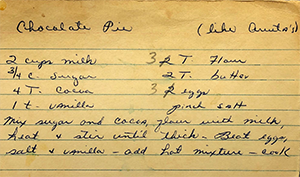 Chocolate Pie (like Anita's)
2 cups milk 3 2 T. Flour
3/4 c. Sugar 2 T. butter
4 T. Cocoa 3 2 eggs
1 t. vanilla pinch salt
Mix sugar and cocoa, flour with milk,
heat & stir until thick - Beat eggs,
salt & vanilla - add hot mixture - cook